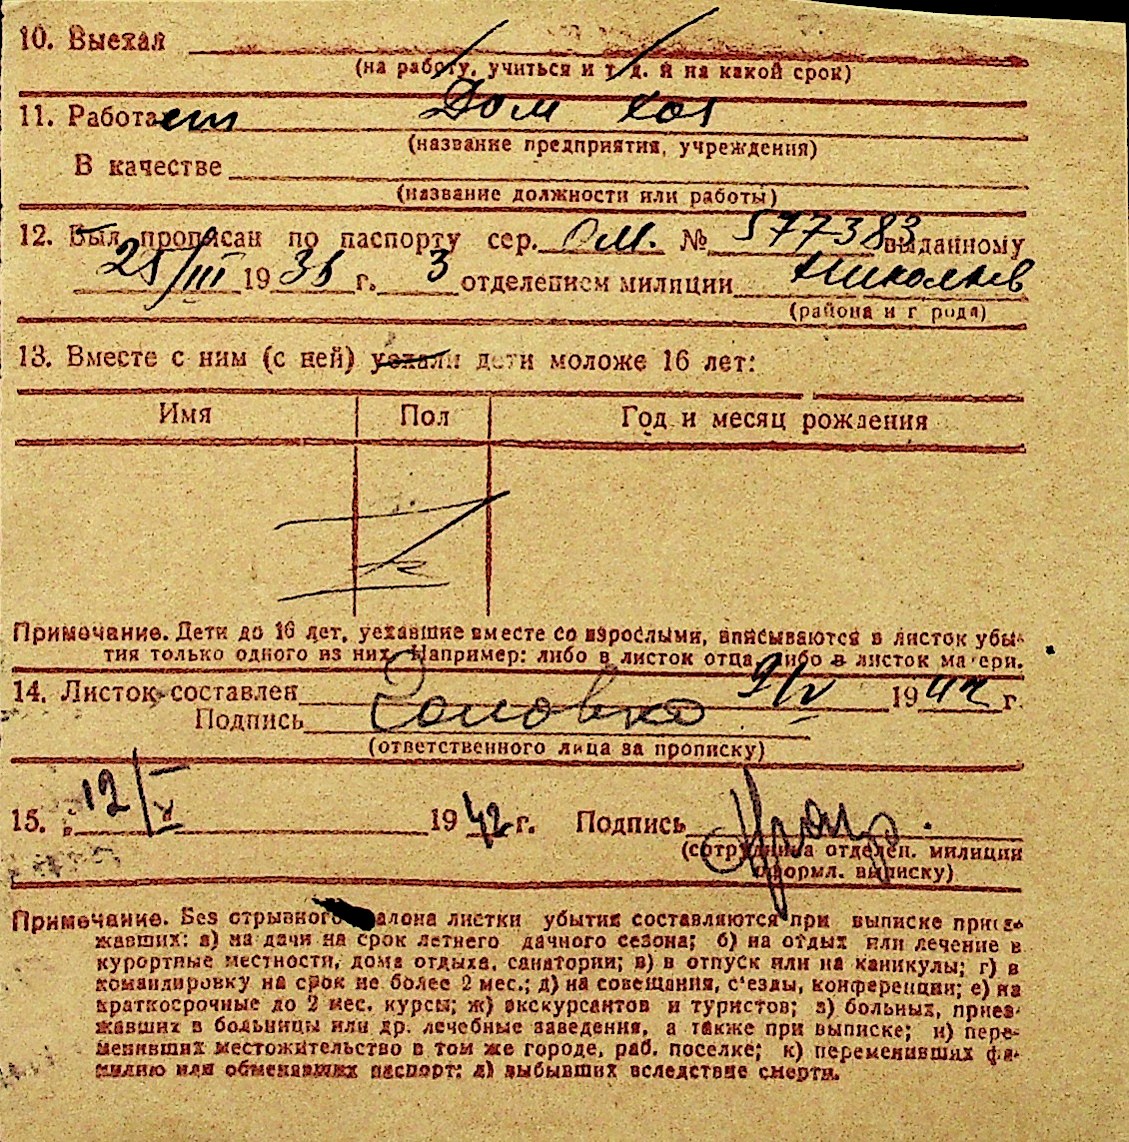 10. Выехал
(на работу, учиться и т. д. и на какой срок)
11. Работает Дом хоз
(название предприятия, учреждения)
В качестве
(название должности или работы)
12. Был прописан по паспорту сер. ОМ. № 577383 выданному
25/III 19 г. 3 отделением милиции Николаев
(района и города)
13. Вместе с ним (с ней) уехали дети моложе 16 лет:
Имя Пол Год и месяц рождения
Примечание. Дети до 16 лет, уехавшие вместе со взрослыми, вписываются в листок убы-
тия только одного из них. Например: либо в листок отца, либо в листок матери.
14. Листок составлен 9/V 1942 г.
Подпись Головко
(ответственного лица за прописку)
15. „12/V 1942 г. Подпись
(сотрудника отделен. милиции
оформл. выписку)
Примечание. Без отрывного талона листки убытия составляются при выписке приез-
жавших: а) на дачи на срок летнего дачного сезона; б) на отдых или лечение в
курортные местности, дома отдыха, санатории; в) в отпуск или на каникулы; г) в
командировку на срок не более 2 мес.; д) на совещания, с'езды, конференции; е) на
краткосрочные до 2 мес. курсы; ж) экскурсантов и туристов; з) больных, приез-
жавших в больницы или др. лечебные заведения, а также при выписке; и) пере-
менивших местожительство в том же городе, раб. поселке; к) переменивших фа-
милию или обменявших паспорт; л) выбывших вследствие смерти.